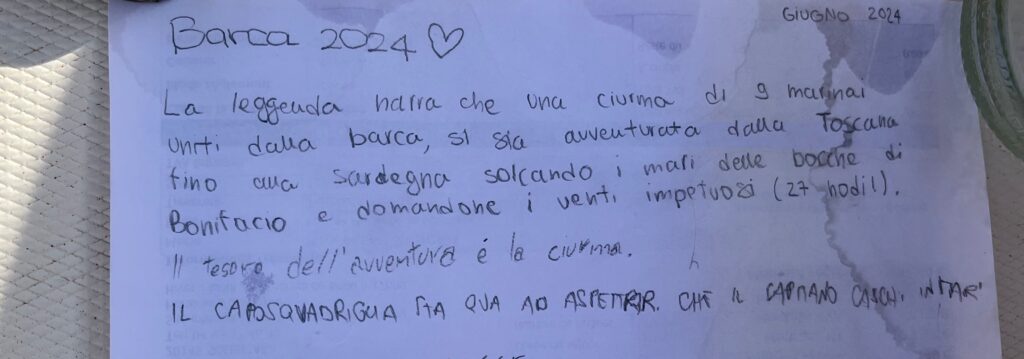 GIUGNO 2024
Barca 2024 ♡
La leggenda narra che una ciurma di 9 marinai
uniti dalla barca, si sia avventurata dalla Toscana
fino alla Sardegna solcando i mari delle bocche di
Bonifacio e domandone i venti impetuosi (27 nodi!).
Il tesoro dell'avventura é la ciurma.
IL CAPOSQUADRIGLIA STA QUA AD ASPETTAR CHE IL CAPITANO CASCHI IN MAR